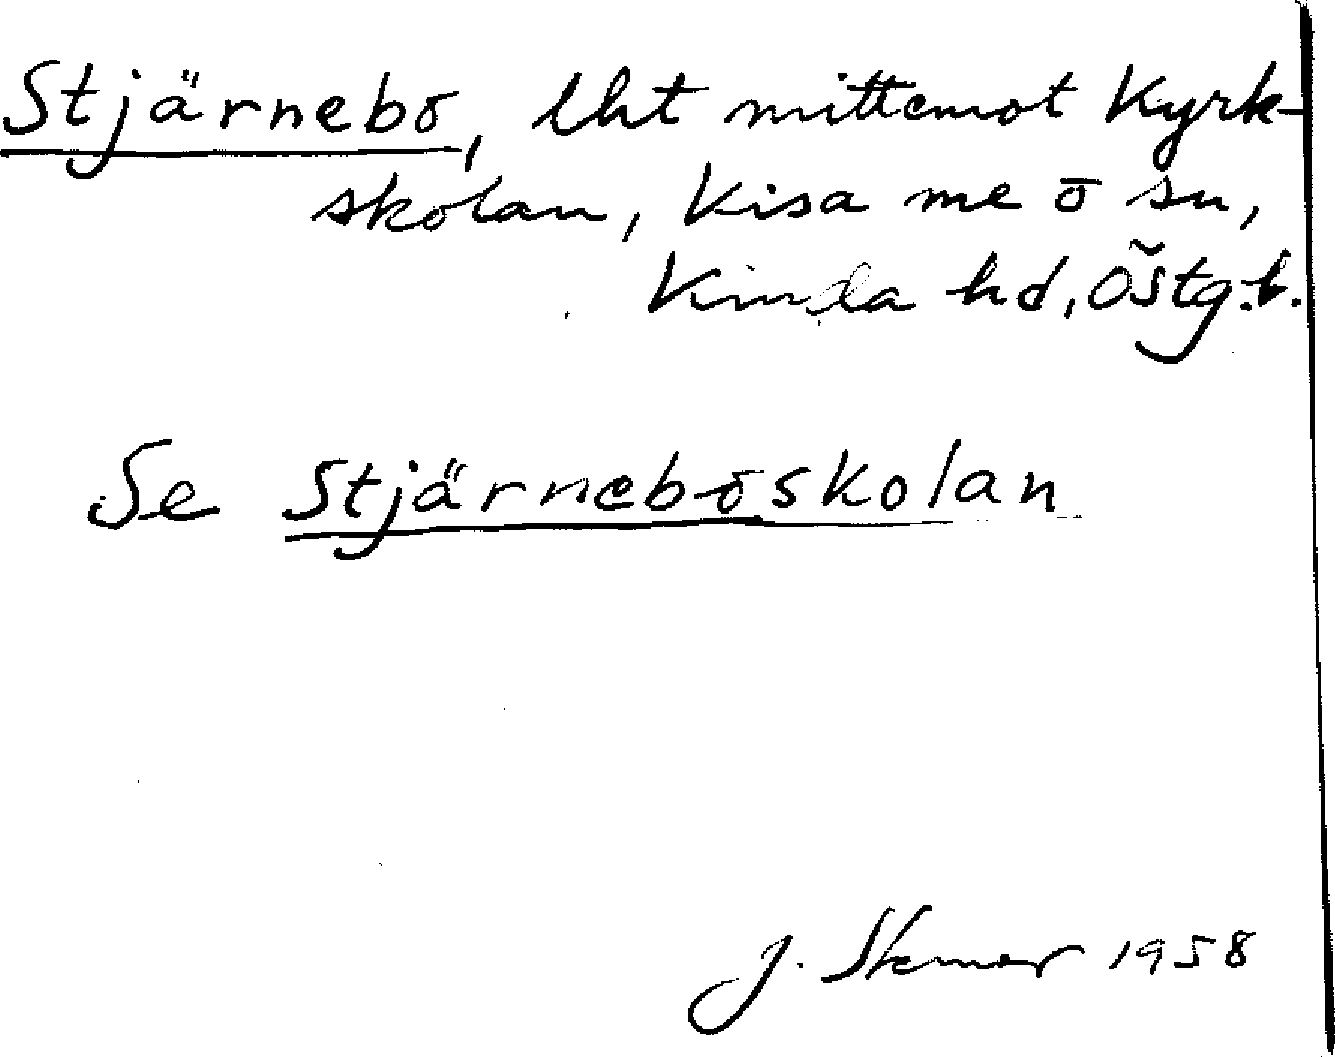 Stjärnebo, lht mittemot Kyrk-
skolan, Kisa me o sn,
Kinda hd, Östg.b.
Se Stjärneboskolan
J. 1958